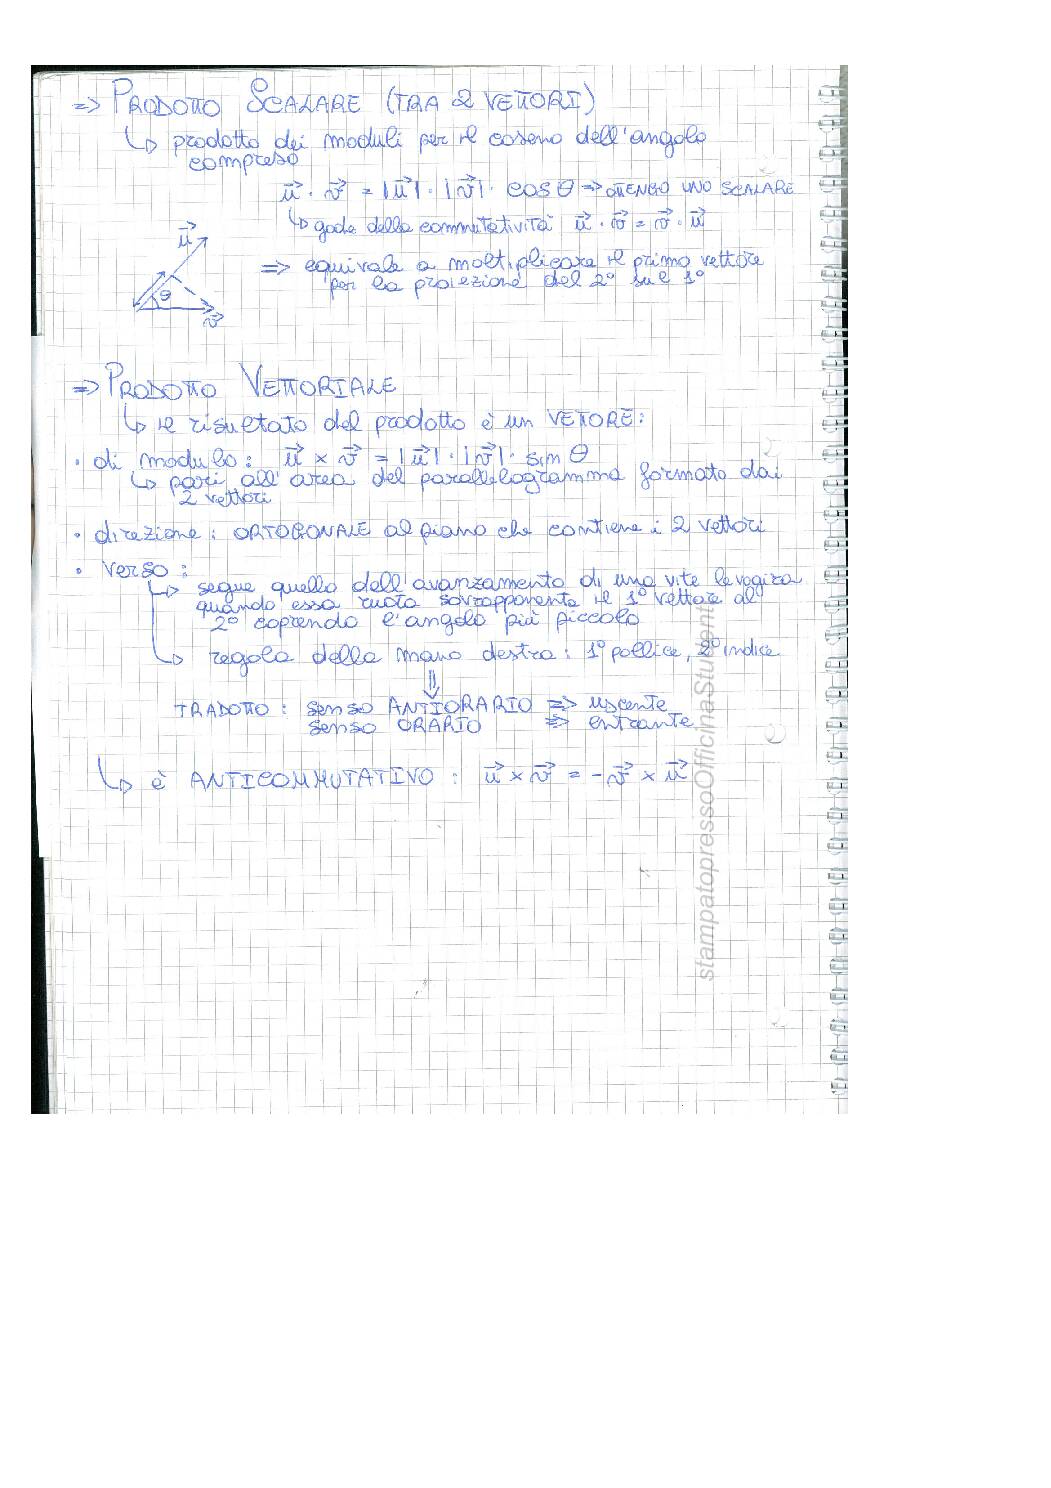 => PRODOTTO SCALARE (TRA 2 VETTORI)
↳ prodotto dei moduli per il coseno dell'angolo
compreso
u⃗ · v⃗ = |u⃗| · |v⃗| · cos θ => OTTENGO UNO SCALARE
↳ gode della commutatività u⃗ · v⃗ = v⃗ · u⃗
u⃗
=> equivale a moltiplicare il primo vettore
per la proiezione del 2° sul 1°
θ
v⃗
=> PRODOTTO VETTORIALE
↳ il risultato del prodotto è un VETTORE:
• di modulo: u⃗ × v⃗ = |u⃗| · |v⃗| · sin θ
↳ pari all'area del parallelogramma formato dai
2 vettori
• direzione: ORTOGONALE al piano che contiene i 2 vettori
• verso:
↳ segue quello dell'avanzamento di una vite levogira
quando essa ruota sovrapponente il 1° vettore al
2° coprendo l'angolo più piccolo
↳ regola della mano destra: 1° pollice, 2° indice
⇓
TRADOTTO: senso ANTIORARIO => uscente
senso ORARIO => entrante
↳ è ANTICOMMUTATIVO: u⃗ × v⃗ = -v⃗ × u⃗
stampatopressoOfficinaStudenti